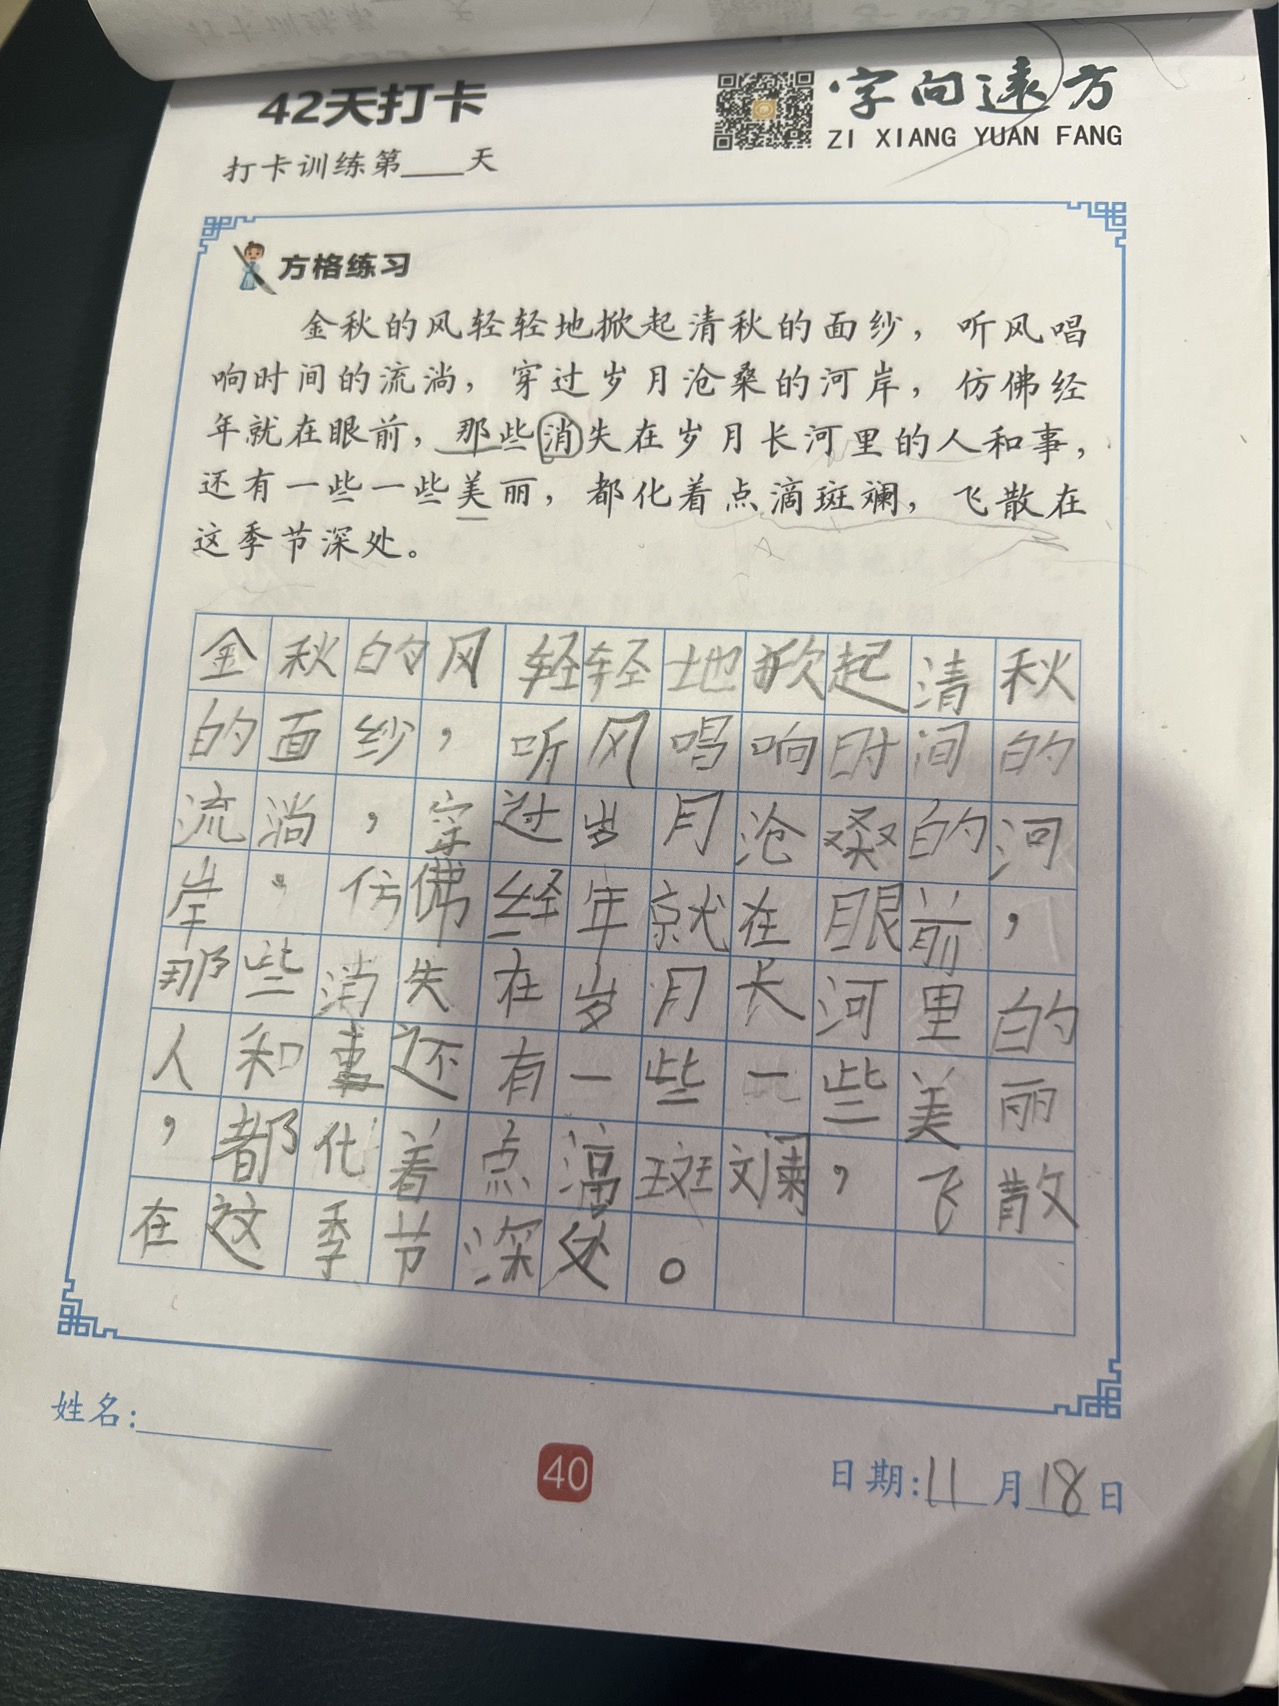 42天打卡
字向远方
ZI XIANG YUAN FANG
打卡训练第____天
方格练习
金秋的风轻轻地掀起清秋的面纱，听风唱
响时间的流淌，穿过岁月沧桑的河岸，仿佛经
年就在眼前，那些消失在岁月长河里的人和事，
还有一些一些美丽，都化着点滴斑斓，飞散在
这季节深处。
金秋的风轻轻地掀起清秋
的面纱，听风唱响时间的
流淌，穿过岁月沧桑的河
岸，仿佛经年就在眼前，
那些消失在岁月长河里的
人和事还有一些一些美丽
，都化着点滴斑斓，飞散
在这季节深处。
姓名:
40
日期:11月18日